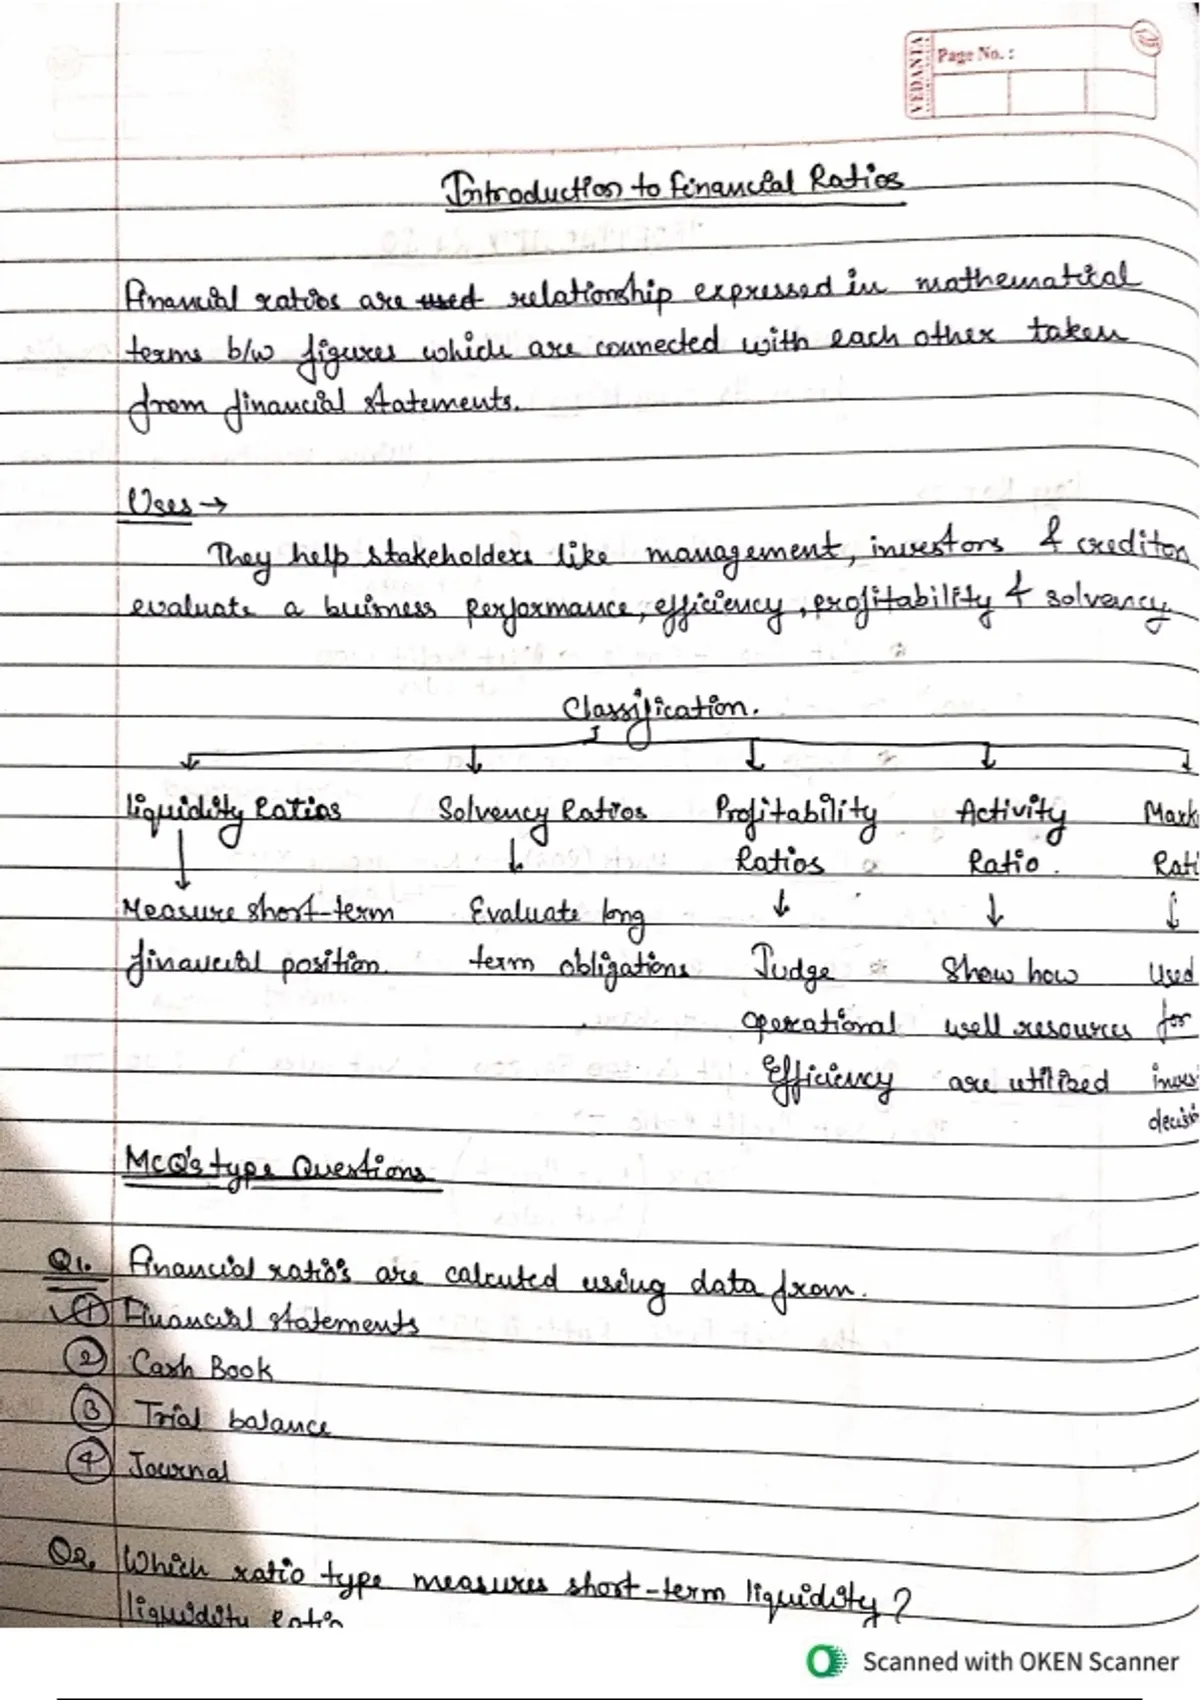 VEDANTA
Page No. :
Introduction to financial Ratios
Financial ratios are used relationship expressed in mathematical
terms b/w figures which are connected with each other taken
from financial statements.
Uses →
They help stakeholders like management, investors & creditors
evaluate a business performance, efficiency, profitability & solvency
Classification.
liquidity Ratios Solvency Ratios Profitability Activity Mark
Ratios Ratio. Rati
Measure short-term Evaluate long
financial position. term obligations Judge Show how Used
operational well resources for
Efficiency are utilized inves
decisi
MCQ's type Questions
Q1. Financial ratio's are calcuted using data from.
① Financial statements
② Cash Book
③ Trial balance
④ Journal
Q2. Which ratio type measures short-term liquidity?
liquidity ratio
Scanned with OKEN Scanner